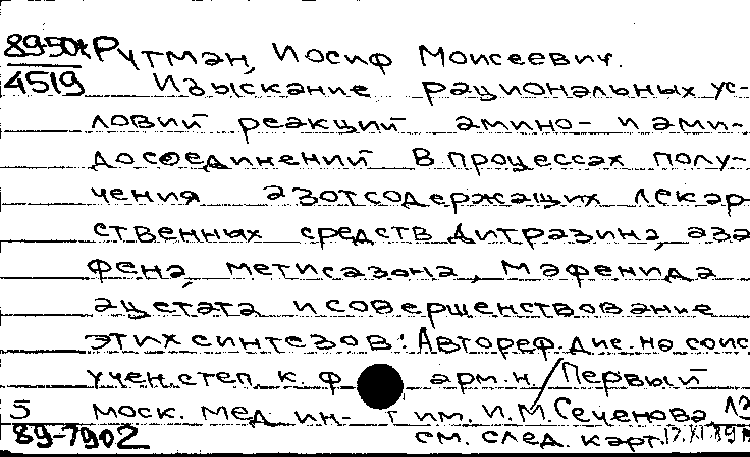 89-50k Рутман, Иосиф Моисеевич.
4519 Изыскание рациональных ус-
ловий реакций амино- и ами-
досоединений в процессах полу-
чения азотсодержащих лекар
ственных средств дитразина, аза
фена, метисазона, мафенида
ацетата и совершенствование
этих синтезов: Автореф. дис. на соис
учен. степ. к. ф арм. н. / Первый
5 моск. мед. ин- т им. И.М. Сеченова
89-7902 см. след. карт.